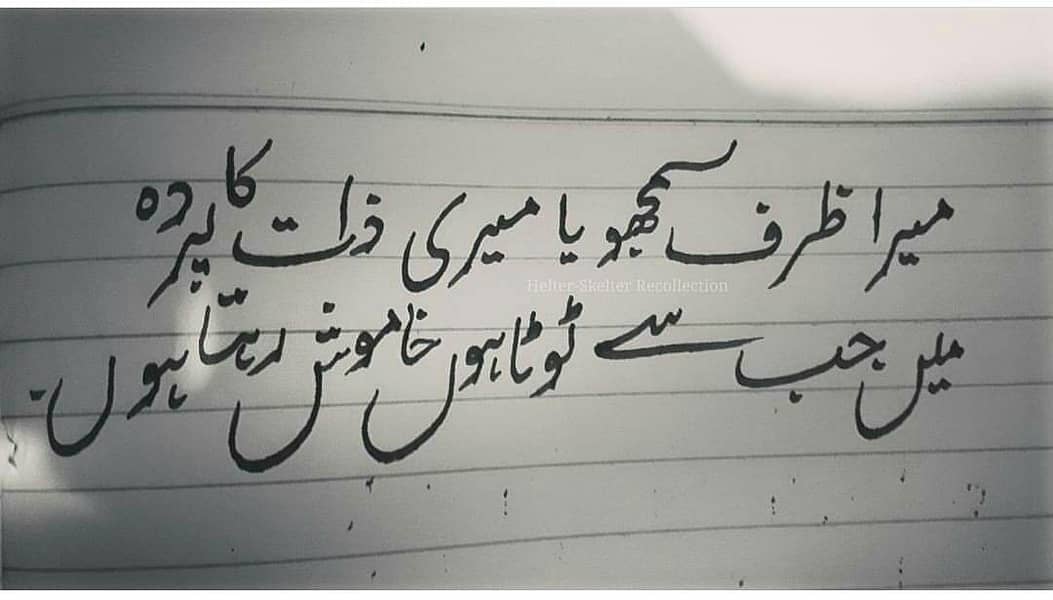 میرا ظرف سمجھو یا میری ذات کا پردہ
Helter-Skelter Recollection
میں جب سے ٹوٹا ہوں خاموش رہتا ہوں۔